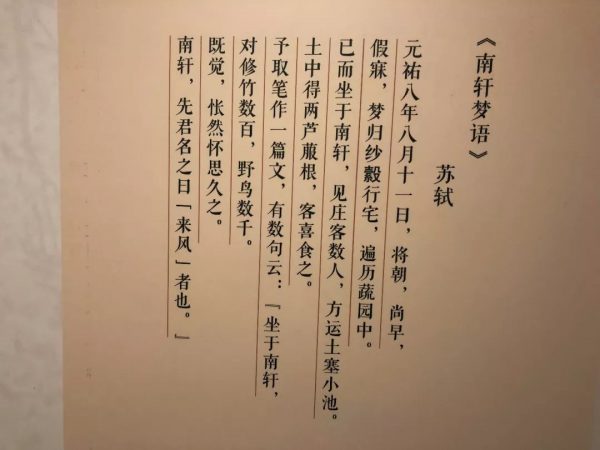 《南轩梦语》
苏轼
元祐八年八月十一日，将朝，尚早，
假寐，梦归纱縠行宅，遍历蔬园中。
已而坐于南轩，见庄客数人，方运土塞小池。
土中得两芦菔根，客喜食之。
予取笔作一篇文，有数句云：『坐于南轩，
对修竹数百，野鸟数千。
既觉，怅然怀思久之。
南轩，先君名之曰「来风」者也。』